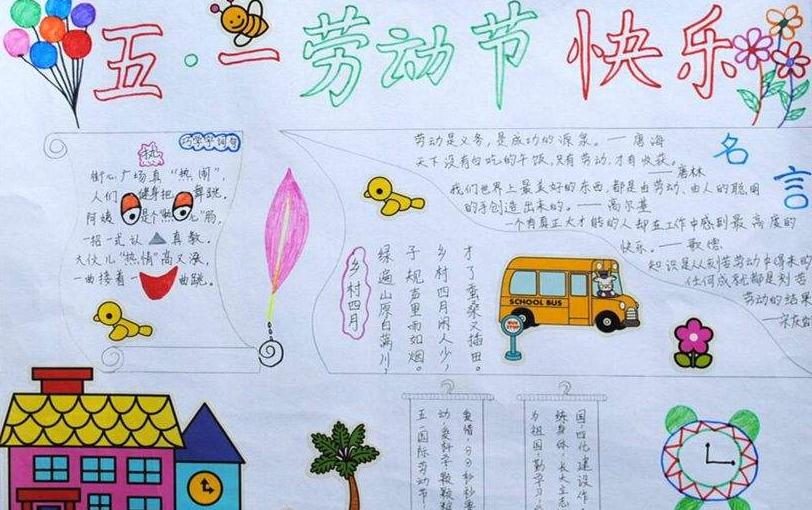 五·一劳动节快乐
巧学字词句
热
街心广场真“热闹”,
人们 健身把 舞跳。
阿姨 是个“热心”肠,
一招一式认 真教。
大伙儿“热情”高又涨,
一曲接着一 曲跳。
劳动是义务,是成功的源泉。——唐海
天下没有白吃的午饭,只有劳动,才有收获。
——詹林
我们世界上最美好的东西,都是由劳动、由人的聪明
的手创造出来的。——高尔基
一个有真正大才能的人却在工作中感到最高度的
快乐。——歌德
知识是从刻苦劳动中得来的
任何成就都是刻苦
劳动的结果
——宋庆龄
名言
乡村四月
绿遍山原白满川,
子规声里雨如烟。
乡村四月闲人少,
才了蚕桑又插田。
SCHOOL BUS
BUS STOP
爱惜,分分秒秒
动,爱科学
五一国际劳动节
国,四化建设作
练身体,长大立志
为祖国,勤学习